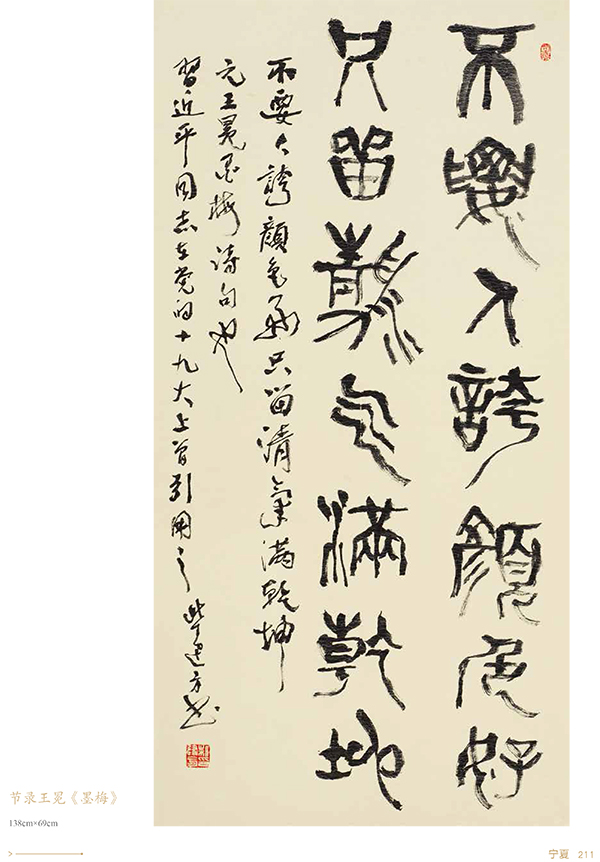 不要人誇顏色好
只留清气滿乾坤
不要人誇顏色好只留清氣滿乾坤
元王冕墨梅诗句也
習近平同志在党的十九大上曾引用之 柴建方书
节录王冕《墨梅》
138cm×69cm
宁夏 211